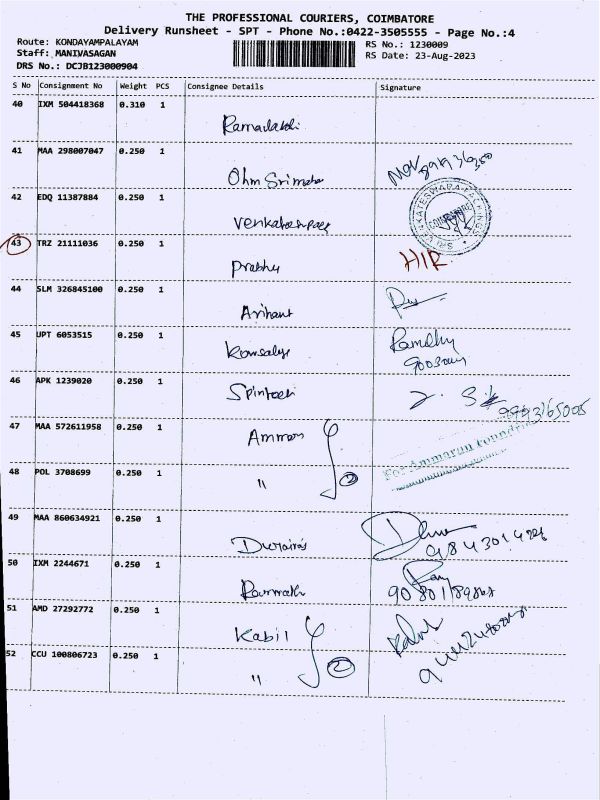 THE PROFESSIONAL COURIERS, COIMBATORE
Delivery Runsheet - SPT - Phone No.:0422-3505555 - Page No.:4
Route: KONDAYAMPALAYAM RS No.: 1230009
Staff: MANIVASAGAN RS Date: 23-Aug-2023
DRS No.: DCJB123000904
S No Consignment No Weight PCS Consignee Details Signature
40 IXM 504418368 0.310 1
41 MAA 298007047 0.250 1
Ohm
42 EDQ 11387884 0.250 1
43 TRZ 21111036 0.250 1
Prabhu HIR
44 SLM 326845100 0.250 1
Arihant
45 UPT 6053515 0.250 1
46 APK 1239020 0.250 1
47 MAA 572611958 0.250 1
Amman For Ammarun Foundries
48 POL 3708699 0.250 1
" 2
49 MAA 860634921 0.250 1
50 IXM 2244671 0.250 1
51 AMD 27292772 0.250 1
Kabil
52 CCU 100806723 0.250 1
" 2